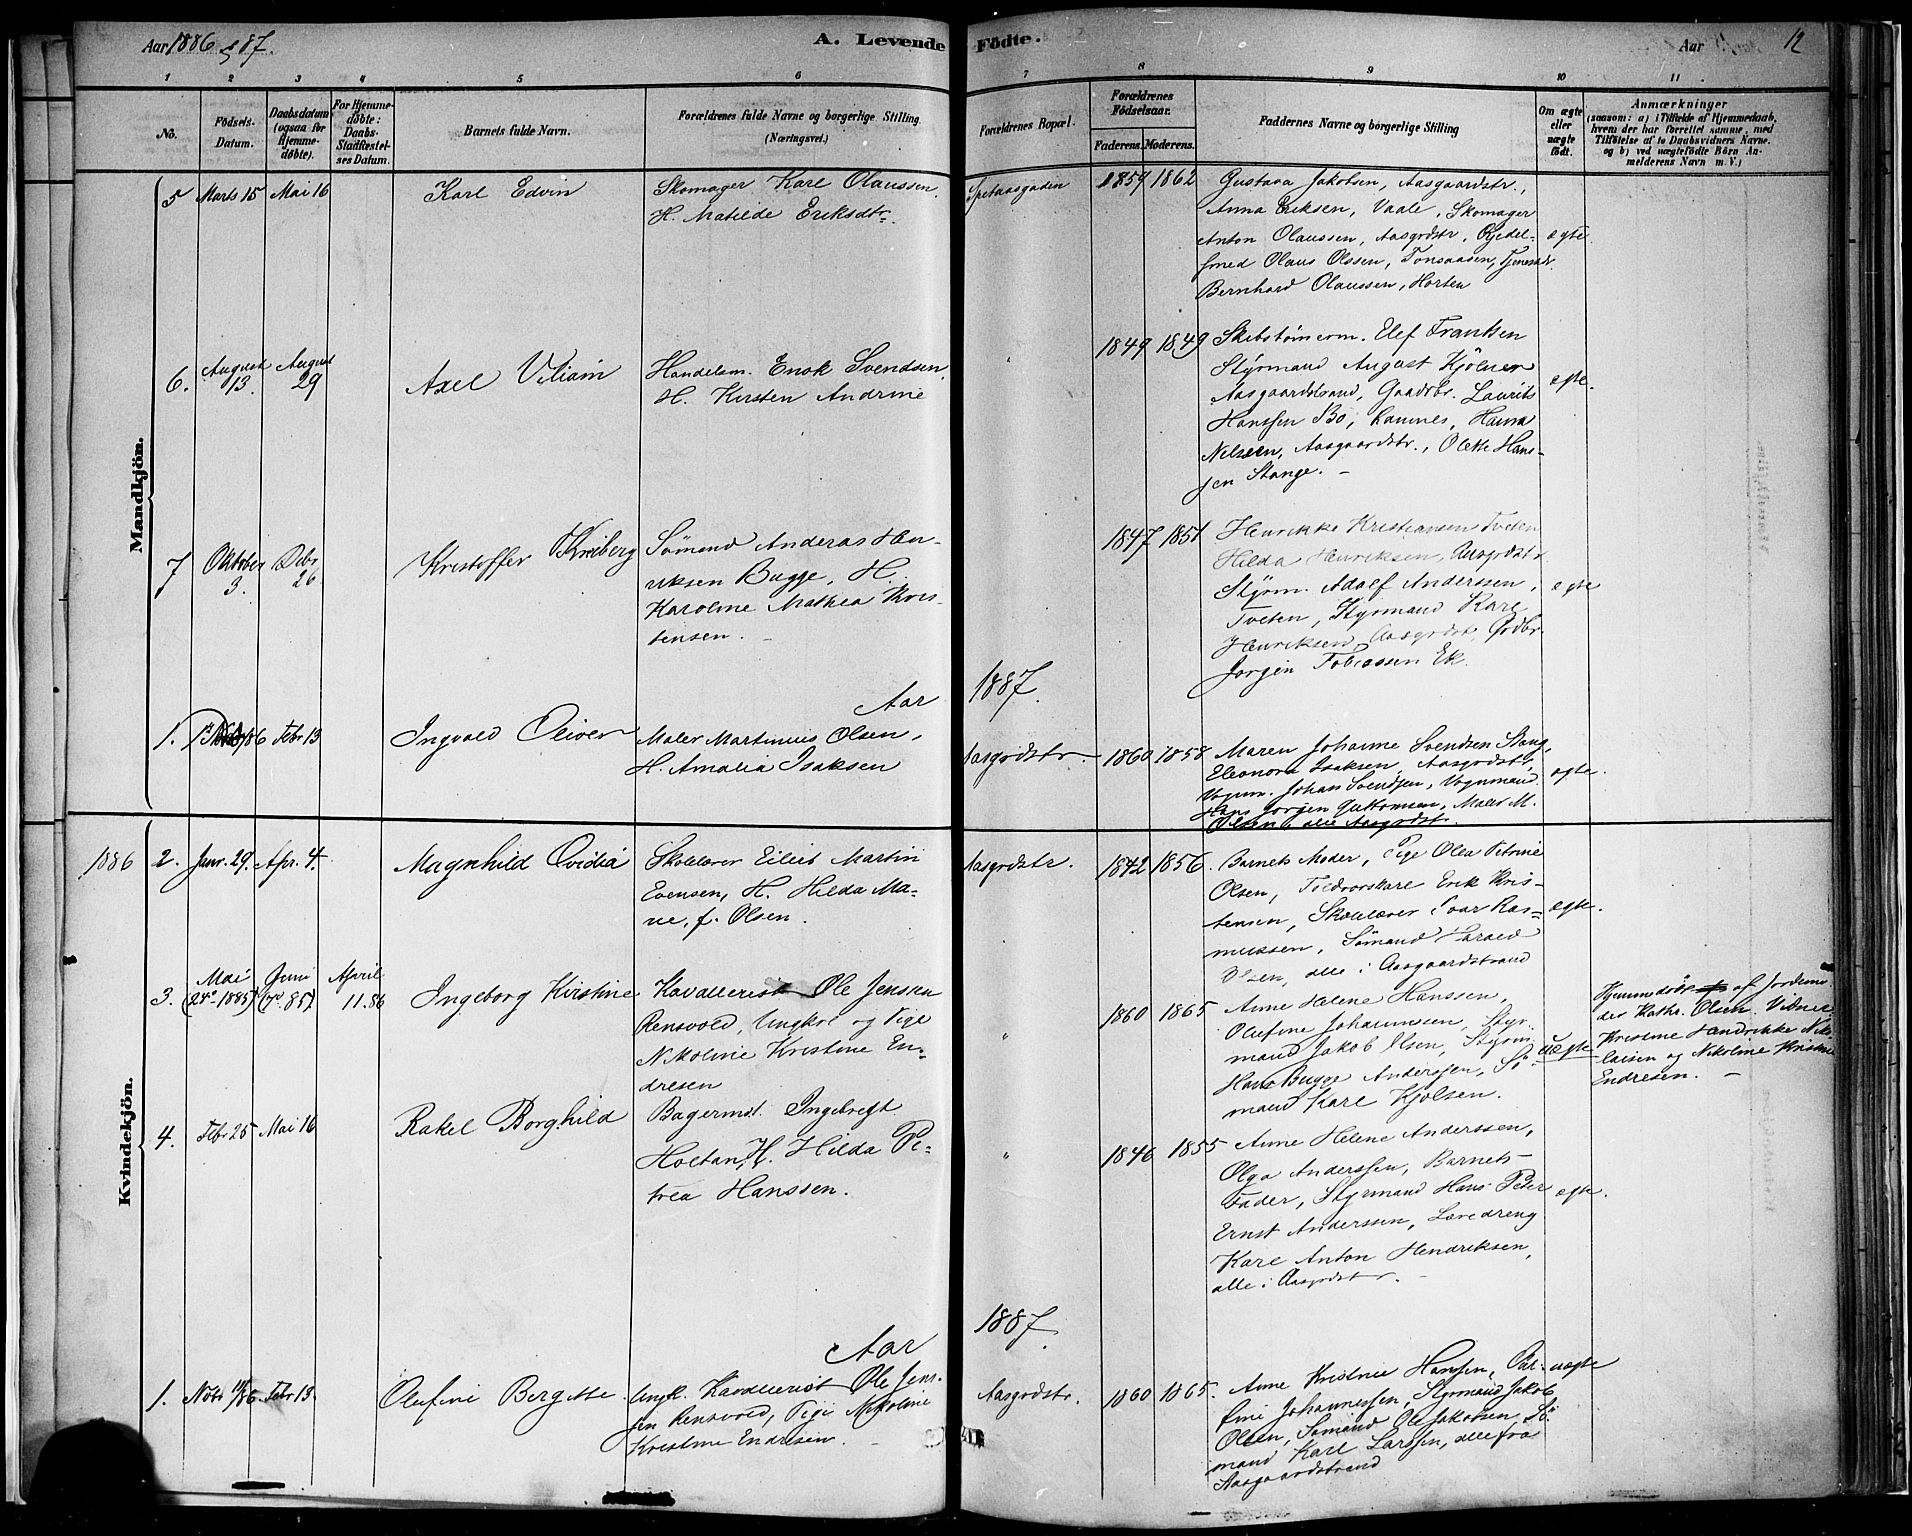 Aar 1886 & 87.
A. Levende Födte.
Aar 12
1 2 3 4 5 6 7 8 9 10 11
No.
Födsels-
Datum.
Daabsdatum
(ogsaa for
Hjemme-
döbte).
For Hjemme-
döbte:
Daabs-
Stadfæstel-
ses Datum.
Barnets fulde Navn.
Forældrenes fulde Navne og borgerlige Stilling.
(Næringsvei.)
Forældrenes Bopæl.
Forældrenes
Födselsaar.
Faderens. Moderens.
Faddernes Navne og borgerlige Stilling
Om ægte
eller
uægte
födt.
Anmærkninger
(saasom: a) i Tilfælde af Hjemmedaab,
hvem der har forrettet samme, med
Tilföielse af to Daabsvidners Navne.
og b) ved uægtefödte Börn An-
melderens Navn m. V.)
Mandkjön.
5 Marts 15 Mai 16
Karl Edvin
Skomager Karl Olaussen,
H. Matilde Eriksdtr.
1859 1862
Gustava Jakobsen, Aasgaardstr.,
Anna Eriksen, Vaale, Skomager
Anton Olaussen, Aasgrdstr, Gjedel-
smed Olaus Olssen, Tonsaasen, Tjenestdr.
Bernhard Olaussen, Horten
ægte
6. August 13. August 29
Axel Viliam
Handelsm. Enok Svendsen,
H. Kirsten Andrine
" 1849 1849
Skibstømerm. Elef Frantsen
Styrmand August Kjölner
Aasgaardstrand, Gaardbr. Laurits
Hanssen Bö, Ramnes, Hanna
Nelseen, Aasgaardstr., Olette Hans-
sen Stange. -
ægte.
7 Oktober 3. Debr 26
Kristoffer Kreiberg
Sömand Anderas Hen-
riksen Bugge, H.
Karoline Mathea Kris-
tensen.
1847 1851
Henrikke Kristiansen Tveten
Hilda Henriksen, Aasgrdstr
Styrm. Adolf Anderssen,
Tveten, Styrmand Karl
Henriksen, Aasgrdst, Grdbr.
Jorgen Tobiassen Ek.
ægte
Aar 1887.
1. 86 Febr 13
Ingvald Oliver
Maler Martinius Olsen,
H. Amalia Isaksen
Aasgrdstr. 1860 1858
Maren Johanne Svendsen Stang,
Eleonora Isaksen, Aasgrdstr,
Vognm. Johan Svendsen, Vognmand
Hans Jorgen Guttormsen, Maler M.
Olsen, alle Aasgrdst.
ægte.
Kvindekjön.
1886 2. Janr. 29. Apr. 4.
Magnhild Ovidia
Skolelærer Eilert Martin
Evensen, H. Hilda Ma-
rie, f. Olsen.
Aasgrdstr. 1842 1856.
Barnets Moder, Pige Olea Petrine
Olsen, Toldrorskarl Erik Kris-
tensen, Skolelærer Ivar Ras-
mussen, Sömand Harald
Olsen, alle i Aasgaardstrand
ægte.
3. Mai (24de 1885) Juni (7de 85) April 11. 86
Ingeborg Kirstine
Kavallerist Ole Jensen
Rensvold, Ungkrl og Pige
Nikoline Kristine En-
dresen
" 1860 1865
Anne Helene Hanssen,
Olufine Johannssen, Styr-
mand Jakob Olsen, Styrm
Hans Bugge Anderssen, Sö-
mand Karl Kjölsen.
uægte
Hjemmedöbt af Jordemo-
der Kathr. Olsen. Vidner
Kristine Hendrikke Nik-
laisen og Nikoline Kristine
Endresen. -
4. Febr 25 Mai 16
Rakel Borghild
Bagermst. Ingebregt
Holtan, H. Hilda Pe-
trea Hanssen.
" 1846 1855
Anne Helene Anderssen,
Olga Anderssen, Barnets-
Fader, Styrmand Hans Peter
Ernst Anderssen, Læredreng
Karl Anton Hendriksen,
alle i Aasgrdstr.
ægte.
Aar 1887.
1. Nobr 11/86 Febr 13.
Olufine Bergitte
Ungk. Kavallerist Ole Jens-
sen Rensvold, Pige Nikoline
Kristine Endresen.
Aasgrdstr. 1860 1865.
Anne Kristine Hanssen, Oal-
fine Johannessen, Styrmand Jakob
Olsen, Sømand Ole Jakobsen, Sö-
mand Karl Larssen, alle fra
Aasgaardstrand
uægte